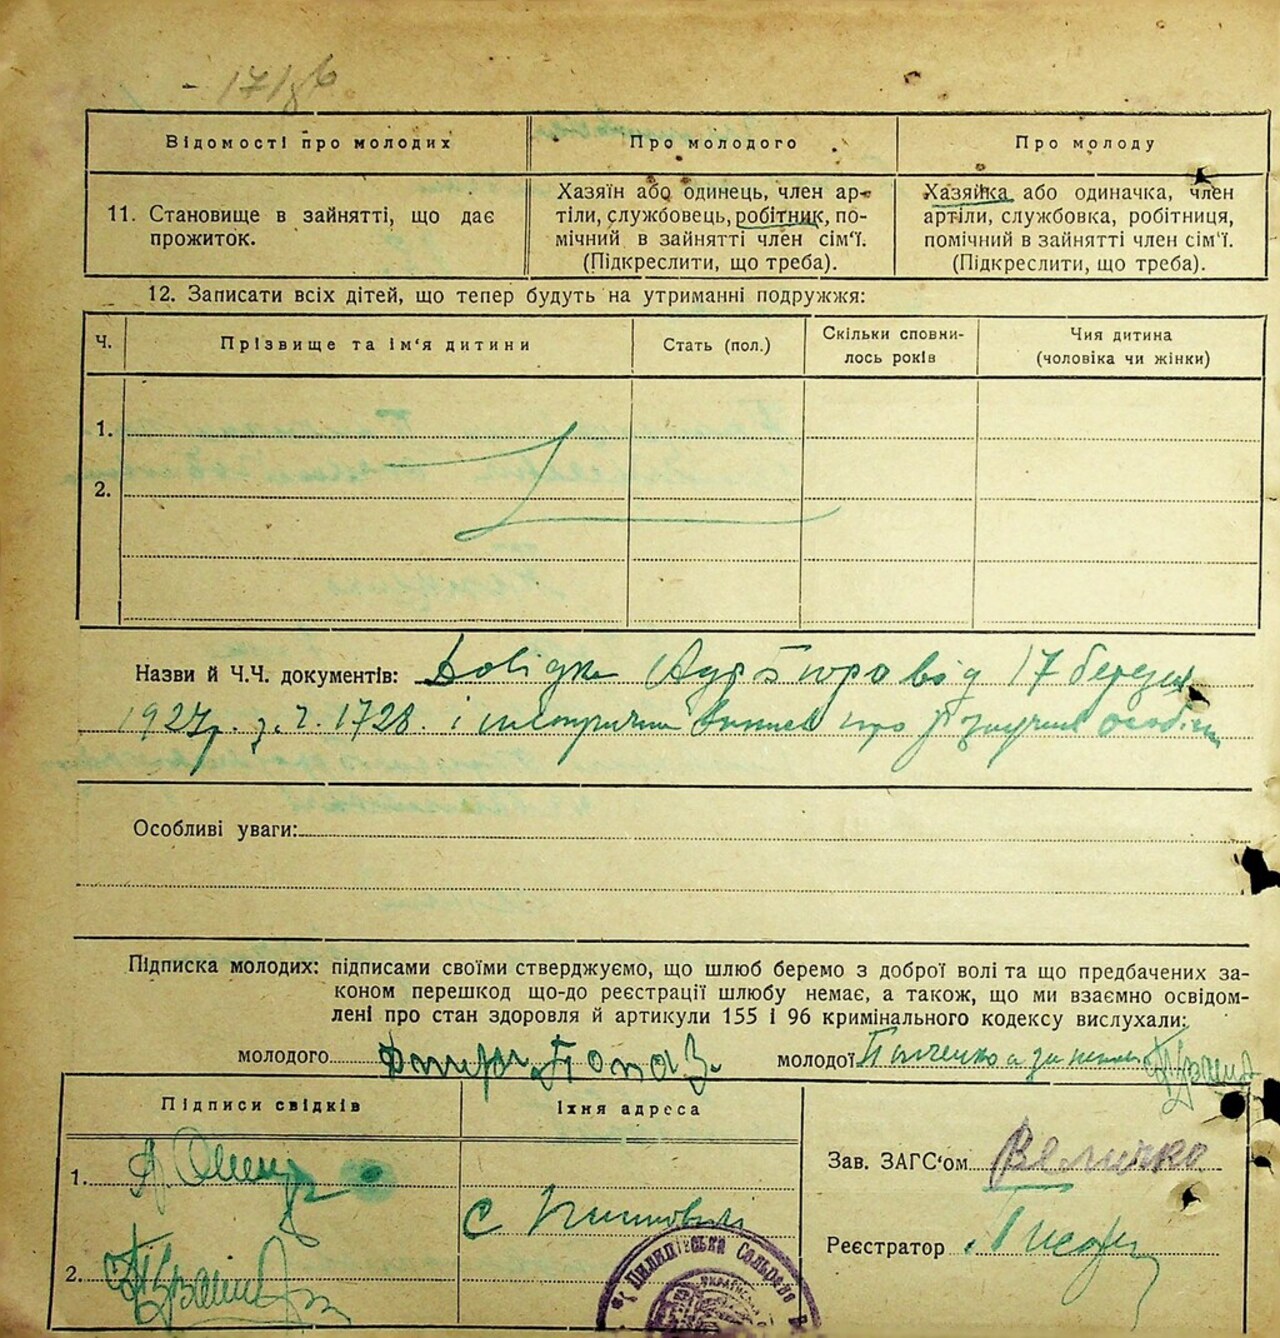 17/86
Відомості про молодих
Про молодого
Про молоду
11. Становище в зайнятті, що дає
прожиток.
Хазяїн або одинець, член ар-
тіли, службовець, робітник, по-
мічний в зайнятті член сім'ї.
(Підкреслити, що треба).
Хазяйка або одиначка, член
артіли, службовка, робітниця,
помічний в зайнятті член сім'ї.
(Підкреслити, що треба).
12. Записати всіх дітей, що тепер будуть на утриманні подружжя:
Ч.
Прізвище та ім'я дитини
Стать (пол.)
Скільки сповни-
лось років
Чия дитина
(чоловіка чи жінки)
1.
2.
Назви й Ч.Ч. документів: Довідка від 17 березня
1927р. з.ч. 1728. і про
Особливі уваги:
Підписка молодих: підписами своїми стверджуємо, що шлюб беремо з доброї волі та що предбачених за-
коном перешкод що-до реєстрації шлюбу немає, а також, що ми взаємно освідом-
лені про стан здоровля й артикули 155 і 96 кримінального кодексу вислухали:
молодого
молодої
Підписи свідків
Їхня адреса
1.
с
2.
Зав. ЗАГС'ом Величко
Реєстратор